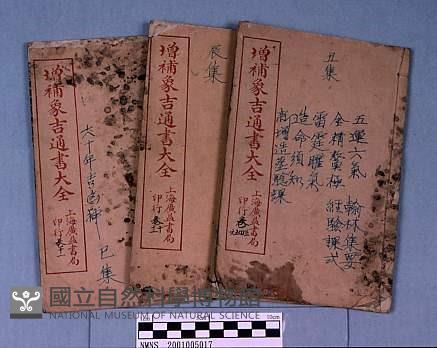 丑集
五運六氣
金精鰲極
雷霆䑓氣
造命須知
翰林集要
經驗課式
增補象吉通書大全
上海廣益書局
印行
辰集
增補象吉通書大全
上海廣益書局
印行
增補象吉通書大全
六十年吉凶神
巳集
上海廣益書局
印行
卷十一
國立自然科學博物館
NATIONAL MUSEUM OF NATURAL SCIENCE
10cm
NMNS 2001005017